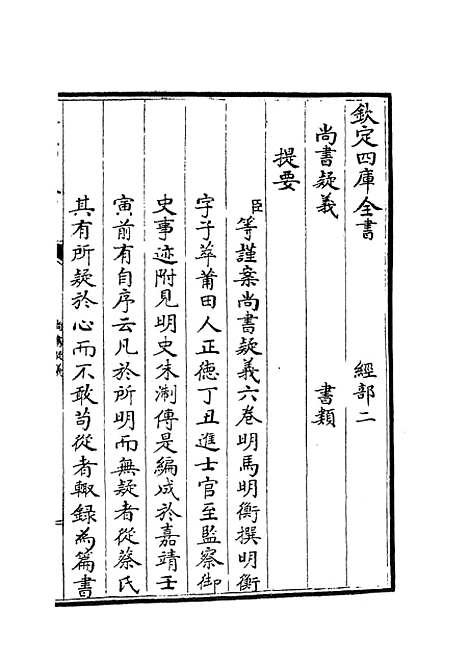 欽定四庫全書　經部二
尚書疑義　書類
提要
臣等謹案尚書疑義六卷明馬明衡撰明衡
字子萃莆田人正徳丁丑進士官至監察御
史事迹附見明史朱淛傳是編成於嘉靖壬
寅前有自序云凡於所明而無疑者從蔡氏
其有所疑於心而不敢茍從者輙録為篇書
尚書疑義